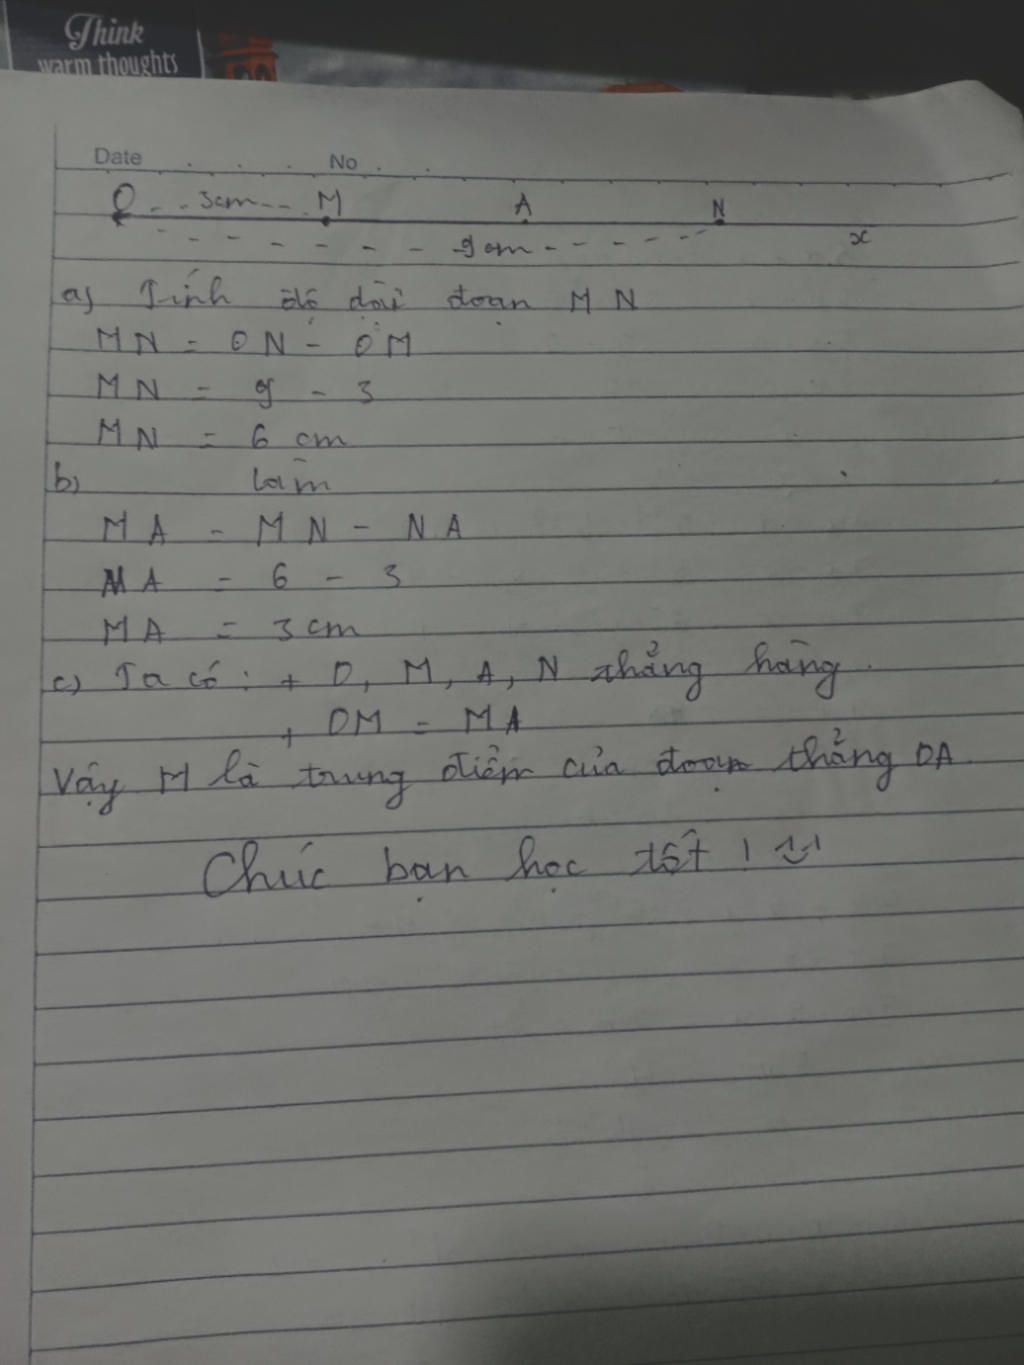 Think
warm thoughts
Date No
O 3cm M A N
9cm x
a) Tính độ dài đoạn MN
MN = ON - OM
MN = 9 - 3
MN = 6 cm
b) Làm
MA = MN - NA
MA = 6 - 3
MA = 3cm
c) Ta có: + O, M, A, N thẳng hàng.
+ OM = MA
Vậy M là trung điểm của đoạn thẳng OA
Chúc bạn học tốt!